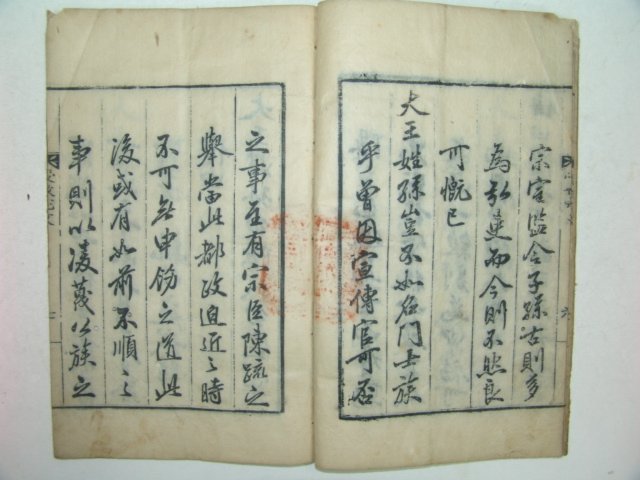 宗室監令子孫古則多
爲敍選而今則不然良
可慨已
大王姓孫豈不如名門士族
乎曾因宣傳官可否
之事至有宗臣陳疏之
擧當此都政迫近之時
不可無申飭之道此
後或有如前不順之
事則以凌蔑公族之